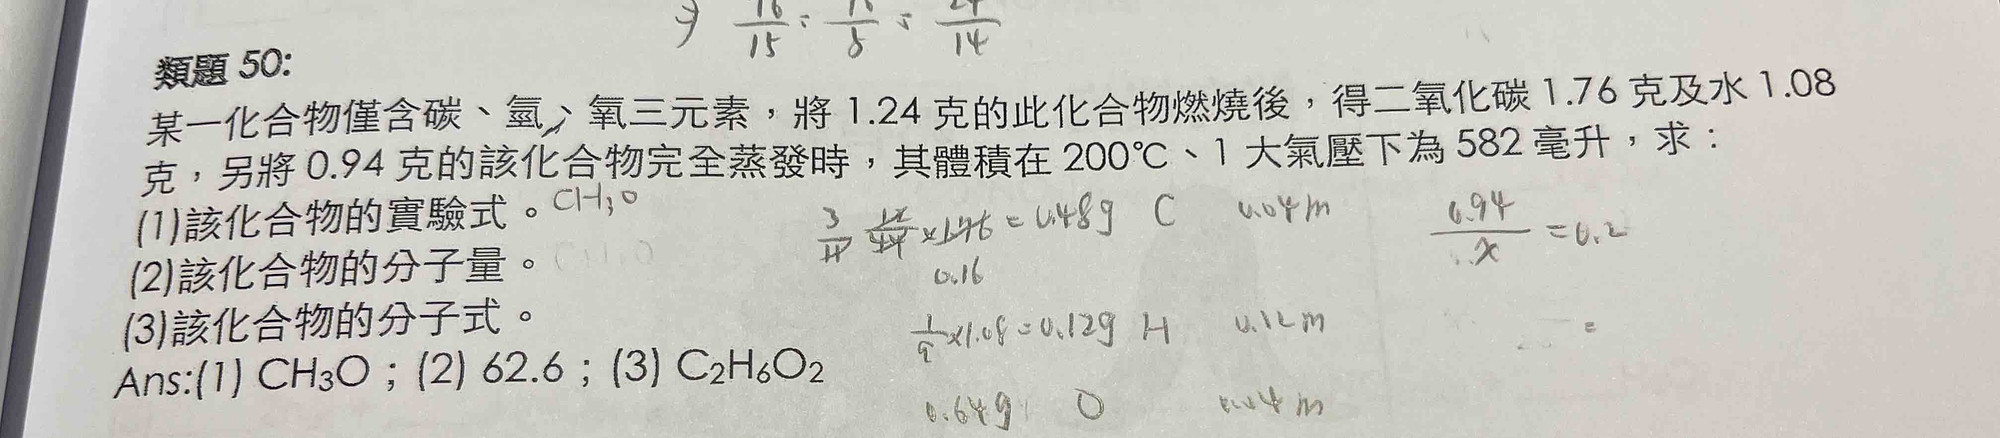 15 8 14
類題 50:
某一化合物僅含碳、氫、氧三元素，將 1.24 克的此化合物燃燒後，得二氧化碳 1.76 克及水 1.08
克，另將 0.94 克的該化合物完全蒸發時，其體積在 200℃、1 大氣壓下為 582 毫升，求：
(1)該化合物的實驗式。CH3O
3/11 12/44 × 1.76 = 0.48g C 0.04m
0.94/x = 0.2
(2)該化合物的分子量。
0.16
(3)該化合物的分子式。
1/9 × 1.08 = 0.12g H 0.12m
=
Ans:(1) CH₃O；(2) 62.6；(3) C₂H₆O₂
0.64g O 0.04m